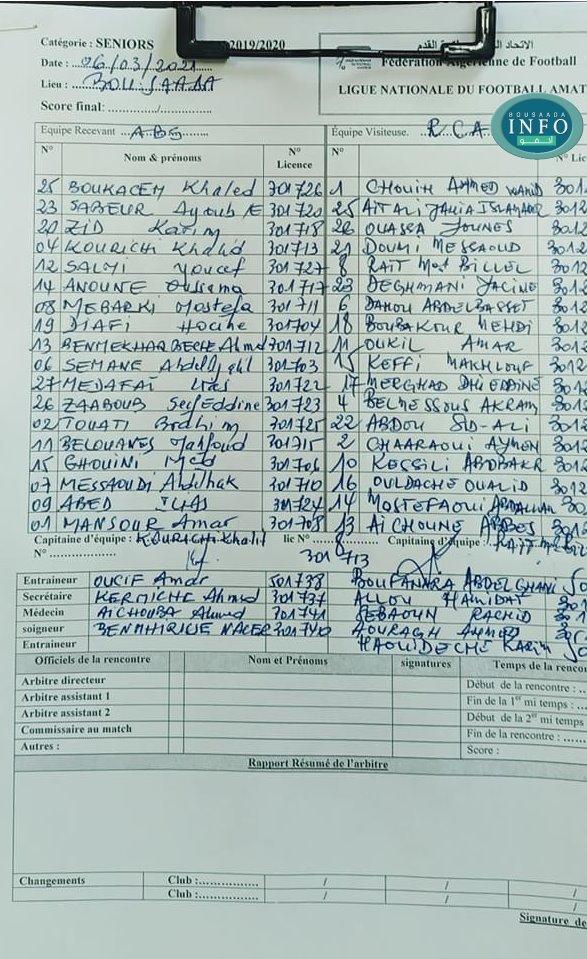 Catégorie : SENIORS 2019/2020
Date : 06/03/2021
Lieu : BOU SAADA
Score final: /
الاتحاد
Fédération Algérienne de Football
LIGUE NATIONALE DU FOOTBALL AMAT
BOUSAADA
INFO
Equipe Recevant ABS Équipe Visiteuse. R.C.A
N° Nom & prénoms N° Licence N° N° Lic
25 BOUKACEM Khaled 301726 1 CHOUIH AHMED WAHID 3012
23 SABEUR Ayoub 301720 25 AIT ALI YAHIA 3012
20 ZID Karim 301718 26 OUASSA YOUNES 3012
04 KOURICHI Khalid 301713 21 DOUMI MESSAOUD 3012
12 SALMI Youcef 301727 8 RAIT Moh BILLEL 3012
14 ANOUNE Oussama 301717 23 DEGHMANI YACINE 3012
08 MEBARKI Mostefa 301711 6 DAHOU ABDELBASSET 3012
19 DIAFI Hocine 301704 18 BOUBAKOUR MEHDI 3012
13 BENMEKHARBECHE Ahmed 301712 11 OUKIL AMAR 3012
06 SEMANE 301703 15 KEFFI MAKHLOUF 3012
27 MEDAFAI 301722 17 MERGHAD DHIEDDINE 3012
26 ZAABOUB Seif Eddine 301723 4 BELMESSOUS AKRAM 3012
02 TOUATI Brahim 301725 22 ABDOU SID-ALI 3012
11 BELOUANES Mahfoud 301715 2 CHAARAOUI AYMEN 3012
15 GHOUINI Med 301706 10 KESSILI ABOBAKR 3012
07 MESSAOUDI Abdelhak 301710 16 OULDACHE OUALID 3012
09 ABED ILIAS 301724 14 MOSTEFAOUI ABDALLAH 3012
01 MANSOUR Amar 301708 13 AICHOUNE ABBES 3012
Capitaine d'équipe : KOURICHI Khalid lic N° Capitaine d'équipe : RAIT
N° 301713
Entraineur OUCIF Amar 501738 BOUFANARA ABDELGHANI
Secrétaire KERMICHE Ahmed 301737 ALLOU HAMIDAT
Médecin AICHOUBA Ahmed 301741 SEBAOUN RACHID
soigneur BENMHIRICHE NACER 301740 AOURAGH AHMED
Entraineur HAOUIDECHE KARIM
Officiels de la rencontre Nom et Prénoms signatures Temps de la rencon
Arbitre directeur Début de la rencontre :
Arbitre assistant 1 Fin de la 1er mi temps :
Arbitre assistant 2 Début de la 2eme mi temps
Commissaire au match Fin de la rencontre :
Autres : Score :
Rapport Résumé de l'arbitre
Changements Club : / / /
Club : / / /
Signature de